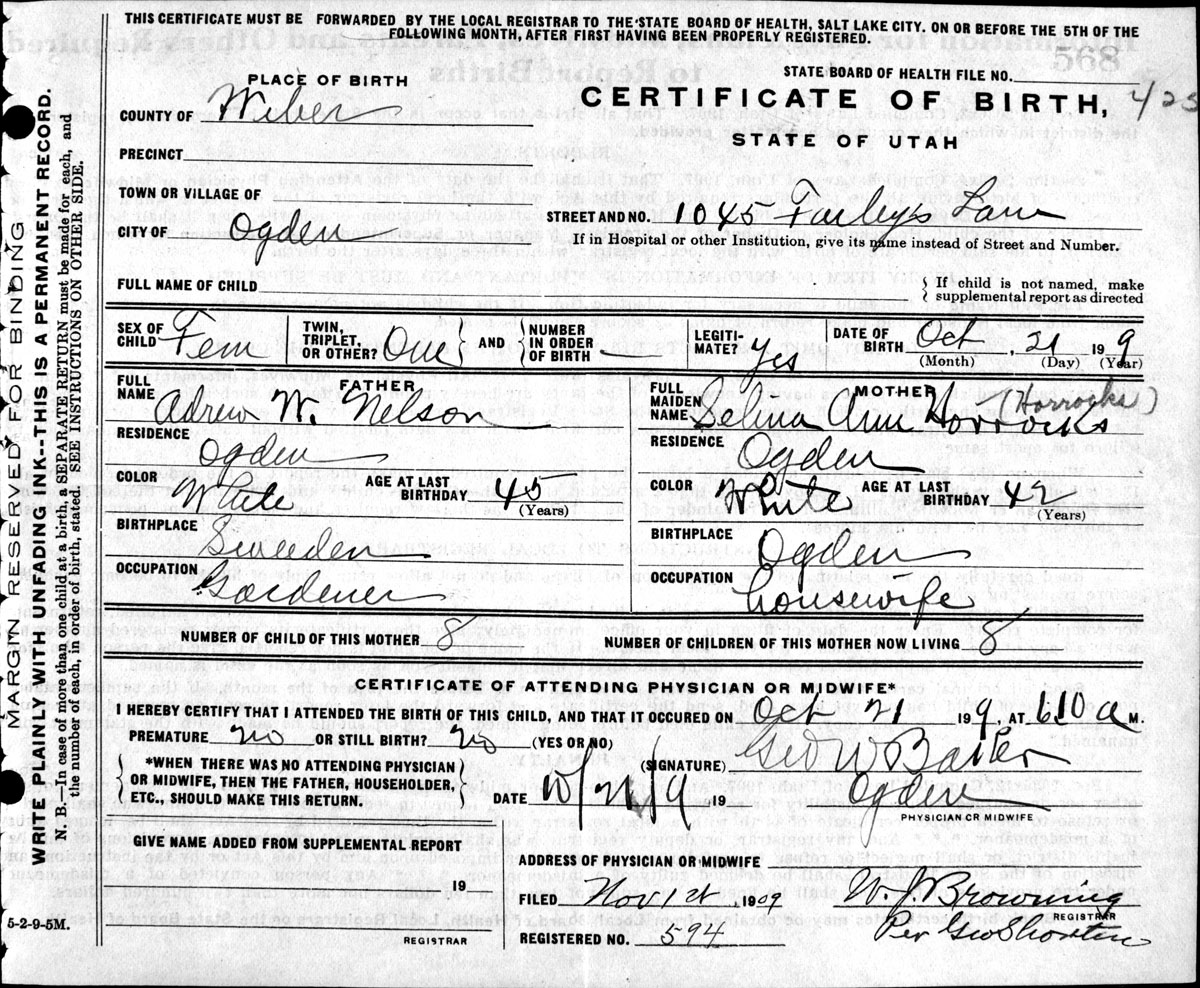 THIS CERTIFICATE MUST BE FORWARDED BY THE LOCAL REGISTRAR TO THE STATE BOARD OF HEALTH, SALT LAKE CITY, ON OR BEFORE THE 5TH OF THE
FOLLOWING MONTH, AFTER FIRST HAVING BEEN PROPERLY REGISTERED.
PLACE OF BIRTH
STATE BOARD OF HEALTH FILE NO.
COUNTY OF Weber
CERTIFICATE OF BIRTH, 423
PRECINCT
STATE OF UTAH
TOWN OR VILLAGE OF
CITY OF Ogden
STREET AND NO. 1045 Lane
If in Hospital or other Institution, give its name instead of Street and Number.
FULL NAME OF CHILD
{ If child is not named, make
supplemental report as directed
SEX OF CHILD Fem
TWIN, TRIPLET, OR OTHER? One } AND { NUMBER IN ORDER OF BIRTH -
LEGITI-MATE? Yes
DATE OF BIRTH Oct, 21 19 9
(Month) (Day) (Year)
FATHER
FULL NAME Adrew M. Nelson
RESIDENCE
Ogden
COLOR White AGE AT LAST BIRTHDAY 45
(Years)
BIRTHPLACE
Sweeden
OCCUPATION
Gardener
MOTHER
FULL MAIDEN NAME Selina Ann Horrocks Horrocks)
RESIDENCE
Ogden
COLOR White AGE AT LAST BIRTHDAY 42
(Years)
BIRTHPLACE
Ogden
OCCUPATION
housewife
NUMBER OF CHILD OF THIS MOTHER 8
NUMBER OF CHILDREN OF THIS MOTHER NOW LIVING 8
CERTIFICATE OF ATTENDING PHYSICIAN OR MIDWIFE*
I HEREBY CERTIFY THAT I ATTENDED THE BIRTH OF THIS CHILD, AND THAT IT OCCURED ON Oct 21 19 9, AT 6:10 a M.
PREMATURE no OR STILL BIRTH? no (YES OR NO)
(SIGNATURE) Geo W Baker
{ *WHEN THERE WAS NO ATTENDING PHYSICIAN
OR MIDWIFE, THEN THE FATHER, HOUSEHOLDER,
ETC., SHOULD MAKE THIS RETURN. }
DATE 10/21/9 19
Ogden
PHYSICIAN OR MIDWIFE
GIVE NAME ADDED FROM SUPPLEMENTAL REPORT
ADDRESS OF PHYSICIAN OR MIDWIFE
19
FILED Nov 1st 1909
W. J. Browning
REGISTRAR
REGISTRAR
REGISTERED NO. 594
Per Geo Shorten
5-2-9-5M.
MARGIN RESERVED FOR BINDING
WRITE PLAINLY WITH UNFADING INK--THIS IS A PERMANENT RECORD.
N. B.—In case of more than one child at a birth, a SEPARATE RETURN must be made for each, and
the number of each, in order of birth, stated. SEE INSTRUCTIONS ON OTHER SIDE.